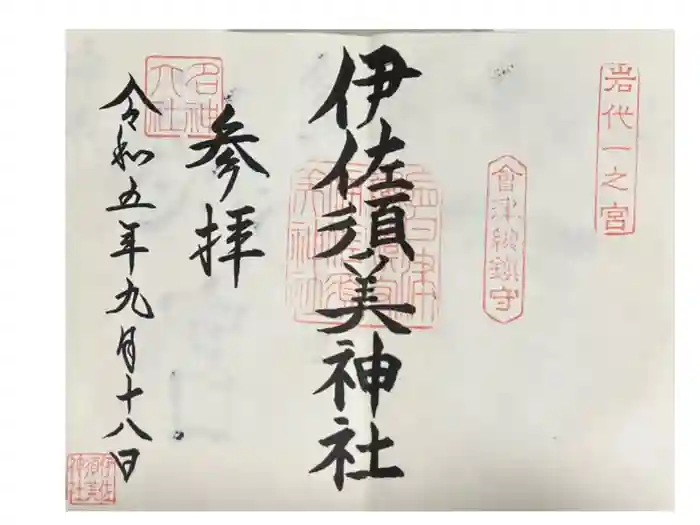 岩代一之宮
會津総鎮守
伊佐須美神社
参拝
名神大社
令和五年九月十八日
伊佐須美神社